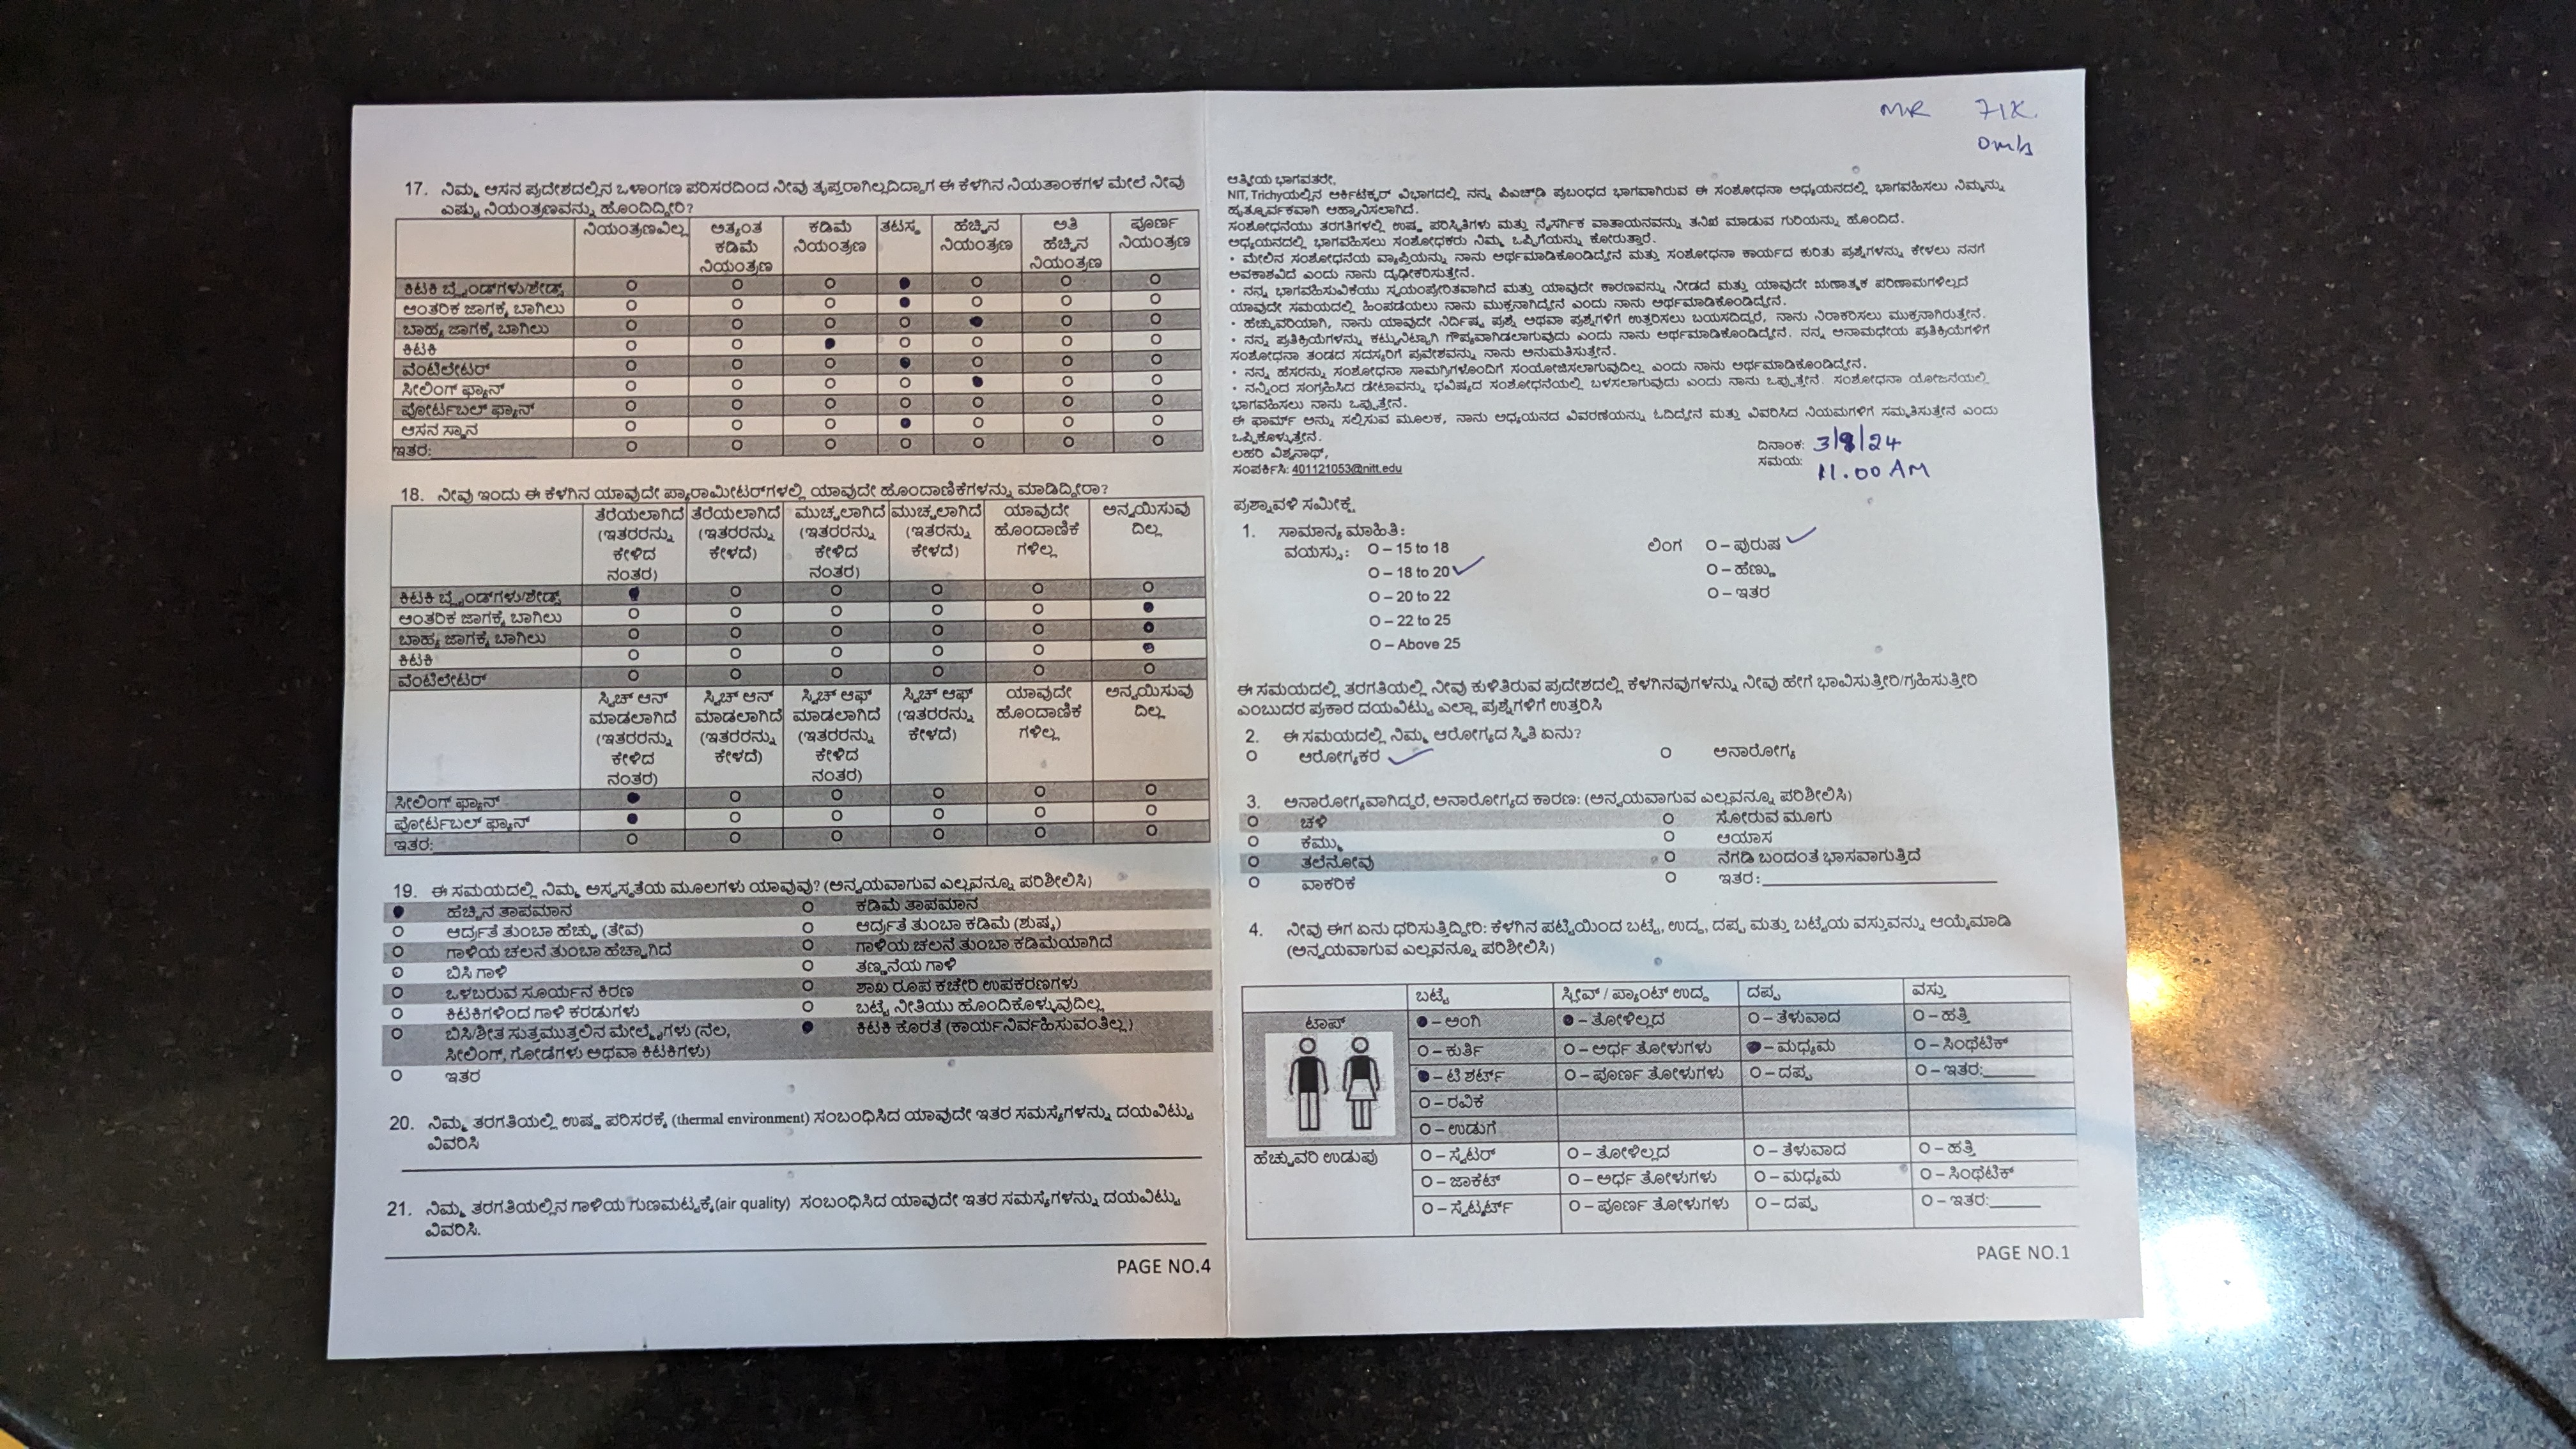 17. ನಿಮ್ಮ ಆಸನ ಪ್ರದೇಶದಲ್ಲಿನ ಒಳಾಂಗಣ ಪರಿಸರದಿಂದ ನೀವು ತೃಪ್ತರಾಗಿಲ್ಲದಿದ್ದಾಗ ಈ ಕೆಳಗಿನ ನಿಯತಾಂಕಗಳ ಮೇಲೆ ನೀವು
ಎಷ್ಟು ನಿಯಂತ್ರಣವನ್ನು ಹೊಂದಿದ್ದೀರಿ?
ನಿಯಂತ್ರಣವಿಲ್ಲ ಅತ್ಯಂತ ಕಡಿಮೆ ತಟಸ್ಥ ಹೆಚ್ಚಿನ ಅತಿ ಪೂರ್ಣ
ಕಡಿಮೆ ನಿಯಂತ್ರಣ ನಿಯಂತ್ರಣ ಹೆಚ್ಚಿನ ನಿಯಂತ್ರಣ
ನಿಯಂತ್ರಣ ನಿಯಂತ್ರಣ
ಕಿಟಕಿ ಬ್ಲೈಂಡ್‌ಗಳು/ಶೇಡ್ಸ್
ಆಂತರಿಕ ಜಾಗಕ್ಕೆ ಬಾಗಿಲು
ಬಾಹ್ಯ ಜಾಗಕ್ಕೆ ಬಾಗಿಲು
ಕಿಟಕಿ
ವೆಂಟಿಲೇಟರ್
ಸೀಲಿಂಗ್ ಫ್ಯಾನ್
ಪೋರ್ಟಬಲ್ ಫ್ಯಾನ್
ಆಸನ ಸ್ಥಾನ
ಇತರ:
18. ನೀವು ಇಂದು ಈ ಕೆಳಗಿನ ಯಾವುದೇ ಪ್ಯಾರಾಮೀಟರ್‌ಗಳಲ್ಲಿ ಯಾವುದೇ ಹೊಂದಾಣಿಕೆಗಳನ್ನು ಮಾಡಿದ್ದೀರಾ?
ತೆರೆಯಲಾಗಿದೆ ತೆರೆಯಲಾಗಿದೆ ಮುಚ್ಚಲಾಗಿದೆ ಮುಚ್ಚಲಾಗಿದೆ ಯಾವುದೇ ಅನ್ವಯಿಸುವು
(ಇತರರನ್ನು (ಇತರರನ್ನು (ಇತರರನ್ನು (ಇತರರನ್ನು ಹೊಂದಾಣಿಕೆ ದಿಲ್ಲ
ಕೇಳಿದ ಕೇಳದೆ) ಕೇಳಿದ ಕೇಳದೆ) ಗಳಿಲ್ಲ
ನಂತರ) ನಂತರ)
ಕಿಟಕಿ ಬ್ಲೈಂಡ್‌ಗಳು/ಶೇಡ್ಸ್
ಆಂತರಿಕ ಜಾಗಕ್ಕೆ ಬಾಗಿಲು
ಬಾಹ್ಯ ಜಾಗಕ್ಕೆ ಬಾಗಿಲು
ಕಿಟಕಿ
ವೆಂಟಿಲೇಟರ್
ಸ್ವಿಚ್ ಆನ್ ಸ್ವಿಚ್ ಆನ್ ಸ್ವಿಚ್ ಆಫ್ ಸ್ವಿಚ್ ಆಫ್ ಯಾವುದೇ ಅನ್ವಯಿಸುವು
ಮಾಡಲಾಗಿದೆ ಮಾಡಲಾಗಿದೆ ಮಾಡಲಾಗಿದೆ (ಇತರರನ್ನು ಹೊಂದಾಣಿಕೆ ದಿಲ್ಲ
(ಇತರರನ್ನು (ಇತರರನ್ನು (ಇತರರನ್ನು ಕೇಳದೆ) ಗಳಿಲ್ಲ
ಕೇಳಿದ ಕೇಳದೆ) ಕೇಳಿದ
ನಂತರ) ನಂತರ)
ಸೀಲಿಂಗ್ ಫ್ಯಾನ್
ಪೋರ್ಟಬಲ್ ಫ್ಯಾನ್
ಇತರ:
19. ಈ ಸಮಯದಲ್ಲಿ ನಿಮ್ಮ ಅಸ್ವಸ್ಥತೆಯ ಮೂಲಗಳು ಯಾವುವು? (ಅನ್ವಯವಾಗುವ ಎಲ್ಲವನ್ನೂ ಪರಿಶೀಲಿಸಿ)
ಹೆಚ್ಚಿನ ತಾಪಮಾನ ಕಡಿಮೆ ತಾಪಮಾನ
ಆರ್ದ್ರತೆ ತುಂಬಾ ಹೆಚ್ಚು (ತೇವ) ಆರ್ದ್ರತೆ ತುಂಬಾ ಕಡಿಮೆ (ಶುಷ್ಕ)
ಗಾಳಿಯ ಚಲನೆ ತುಂಬಾ ಹೆಚ್ಚಾಗಿದೆ ಗಾಳಿಯ ಚಲನೆ ತುಂಬಾ ಕಡಿಮೆಯಾಗಿದೆ
ಬಿಸಿ ಗಾಳಿ ತಣ್ಣನೆಯ ಗಾಳಿ
ಒಳಬರುವ ಸೂರ್ಯನ ಕಿರಣ ಶಾಖ ರೂಪ ಕಚೇರಿ ಉಪಕರಣಗಳು
ಕಿಟಕಿಗಳಿಂದ ಗಾಳಿ ಕರಡುಗಳು ಬಟ್ಟೆ ನೀತಿಯು ಹೊಂದಿಕೊಳ್ಳುವುದಿಲ್ಲ
ಬಿಸಿ/ಶೀತ ಸುತ್ತಮುತ್ತಲಿನ ಮೇಲ್ಮೈಗಳು (ನೆಲ, ಕಿಟಕಿ ಕೊರತೆ (ಕಾರ್ಯನಿರ್ವಹಿಸುವಂತಿಲ್ಲ)
ಸೀಲಿಂಗ್, ಗೋಡೆಗಳು ಅಥವಾ ಕಿಟಕಿಗಳು)
ಇತರ
20. ನಿಮ್ಮ ತರಗತಿಯಲ್ಲಿ ಉಷ್ಣ ಪರಿಸರಕ್ಕೆ (thermal environment) ಸಂಬಂಧಿಸಿದ ಯಾವುದೇ ಇತರ ಸಮಸ್ಯೆಗಳನ್ನು ದಯವಿಟ್ಟು
ವಿವರಿಸಿ
21. ನಿಮ್ಮ ತರಗತಿಯಲ್ಲಿನ ಗಾಳಿಯ ಗುಣಮಟ್ಟಕ್ಕೆ(air quality) ಸಂಬಂಧಿಸಿದ ಯಾವುದೇ ಇತರ ಸಮಸ್ಯೆಗಳನ್ನು ದಯವಿಟ್ಟು
ವಿವರಿಸಿ.
PAGE NO.4
MR
ಆತ್ಮೀಯ ಭಾಗವಹರೇ,
NIT, Trichyಯಲ್ಲಿನ ಆರ್ಕಿಟೆಕ್ಚರ್ ವಿಭಾಗದಲ್ಲಿ ನನ್ನ ಪಿಎಚ್‌ಡಿ ಪ್ರಬಂಧದ ಭಾಗವಾಗಿರುವ ಈ ಸಂಶೋಧನಾ ಅಧ್ಯಯನದಲ್ಲಿ ಭಾಗವಹಿಸಲು ನಿಮ್ಮನ್ನು
ಹೃತ್ಪೂರ್ವಕವಾಗಿ ಆಹ್ವಾನಿಸಲಾಗಿದೆ.
ಸಂಶೋಧನೆಯು ತರಗತಿಗಳಲ್ಲಿ ಉಷ್ಣ ಪರಿಸ್ಥಿತಿಗಳು ಮತ್ತು ನೈಸರ್ಗಿಕ ವಾತಾಯನವನ್ನು ತನಿಖೆ ಮಾಡುವ ಗುರಿಯನ್ನು ಹೊಂದಿದೆ.
ಅಧ್ಯಯನದಲ್ಲಿ ಭಾಗವಹಿಸಲು ಸಂಶೋಧಕರು ನಿಮ್ಮ ಒಪ್ಪಿಗೆಯನ್ನು ಕೋರುತ್ತಾರೆ.
• ಮೇಲಿನ ಸಂಶೋಧನೆಯ ವ್ಯಾಪ್ತಿಯನ್ನು ನಾನು ಅರ್ಥಮಾಡಿಕೊಂಡಿದ್ದೇನೆ ಮತ್ತು ಸಂಶೋಧನಾ ಕಾರ್ಯದ ಕುರಿತು ಪ್ರಶ್ನೆಗಳನ್ನು ಕೇಳಲು ನನಗೆ
ಅವಕಾಶವಿದೆ ಎಂದು ನಾನು ದೃಢೀಕರಿಸುತ್ತೇನೆ.
• ನನ್ನ ಭಾಗವಹಿಸುವಿಕೆಯು ಸ್ವಯಂಪ್ರೇರಿತವಾಗಿದೆ ಮತ್ತು ಯಾವುದೇ ಕಾರಣವನ್ನು ನೀಡದೆ ಮತ್ತು ಯಾವುದೇ ಋಣಾತ್ಮಕ ಪರಿಣಾಮಗಳಿಲ್ಲದೆ
ಯಾವುದೇ ಸಮಯದಲ್ಲಿ ಹಿಂಪಡೆಯಲು ನಾನು ಮುಕ್ತನಾಗಿದ್ದೇನೆ ಎಂದು ನಾನು ಅರ್ಥಮಾಡಿಕೊಂಡಿದ್ದೇನೆ.
• ಹೆಚ್ಚುವರಿಯಾಗಿ, ನಾನು ಯಾವುದೇ ನಿರ್ದಿಷ್ಟ ಪ್ರಶ್ನೆ ಅಥವಾ ಪ್ರಶ್ನೆಗಳಿಗೆ ಉತ್ತರಿಸಲು ಬಯಸದಿದ್ದರೆ, ನಾನು ನಿರಾಕರಿಸಲು ಮುಕ್ತನಾಗಿರುತ್ತೇನೆ.
• ನನ್ನ ಪ್ರತಿಕ್ರಿಯೆಗಳನ್ನು ಕಟ್ಟುನಿಟ್ಟಾಗಿ ಗೌಪ್ಯವಾಗಿಡಲಾಗುವುದು ಎಂದು ನಾನು ಅರ್ಥಮಾಡಿಕೊಂಡಿದ್ದೇನೆ. ನನ್ನ ಅನಾಮಧೇಯ ಪ್ರತಿಕ್ರಿಯೆಗಳಿಗೆ
ಸಂಶೋಧನಾ ತಂಡದ ಸದಸ್ಯರಿಗೆ ಪ್ರವೇಶವನ್ನು ನಾನು ಅನುಮತಿಸುತ್ತೇನೆ.
• ನನ್ನ ಹೆಸರನ್ನು ಸಂಶೋಧನಾ ಸಾಮಗ್ರಿಗಳೊಂದಿಗೆ ಸಂಯೋಜಿಸಲಾಗುವುದಿಲ್ಲ ಎಂದು ನಾನು ಅರ್ಥಮಾಡಿಕೊಂಡಿದ್ದೇನೆ.
• ನನ್ನಿಂದ ಸಂಗ್ರಹಿಸಿದ ಡೇಟಾವನ್ನು ಭವಿಷ್ಯದ ಸಂಶೋಧನೆಯಲ್ಲಿ ಬಳಸಲಾಗುವುದು ಎಂದು ನಾನು ಒಪ್ಪುತ್ತೇನೆ. ಸಂಶೋಧನಾ ಯೋಜನೆಯಲ್ಲಿ
ಭಾಗವಹಿಸಲು ನಾನು ಒಪ್ಪುತ್ತೇನೆ.
ಈ ಫಾರ್ಮ್ ಅನ್ನು ಸಲ್ಲಿಸುವ ಮೂಲಕ, ನಾನು ಅಧ್ಯಯನದ ವಿವರಣೆಯನ್ನು ಓದಿದ್ದೇನೆ ಮತ್ತು ವಿವರಿಸಿದ ನಿಯಮಗಳಿಗೆ ಸಮ್ಮತಿಸುತ್ತೇನೆ ಎಂದು
ಒಪ್ಪಿಕೊಳ್ಳುತ್ತೇನೆ.
ಲಹರಿ ವಿಶ್ವನಾಥ್,
ಸಂಪರ್ಕಿಸಿ: 401121053@nitt.edu
ದಿನಾಂಕ: 3/8/24
ಸಮಯ: 11.00 AM
ಪ್ರಶ್ನಾವಳಿ ಸಮೀಕ್ಷೆ
1. ಸಾಮಾನ್ಯ ಮಾಹಿತಿ:
ವಯಸ್ಸು: O – 15 to 18 ಲಿಂಗ O – ಪುರುಷ
O – 18 to 20 O – ಹೆಣ್ಣು
O – 20 to 22 O – ಇತರ
O – 22 to 25
O – Above 25
ಈ ಸಮಯದಲ್ಲಿ ತರಗತಿಯಲ್ಲಿ ನೀವು ಕುಳಿತಿರುವ ಪ್ರದೇಶದಲ್ಲಿ ಕೆಳಗಿನವುಗಳನ್ನು ನೀವು ಹೇಗೆ ಭಾವಿಸುತ್ತೀರಿ/ಗ್ರಹಿಸುತ್ತೀರಿ
ಎಂಬುದರ ಪ್ರಕಾರ ದಯವಿಟ್ಟು ಎಲ್ಲಾ ಪ್ರಶ್ನೆಗಳಿಗೆ ಉತ್ತರಿಸಿ
2. ಈ ಸಮಯದಲ್ಲಿ ನಿಮ್ಮ ಆರೋಗ್ಯದ ಸ್ಥಿತಿ ಏನು?
O ಆರೋಗ್ಯಕರ O ಅನಾರೋಗ್ಯ
3. ಅನಾರೋಗ್ಯವಾಗಿದ್ದರೆ, ಅನಾರೋಗ್ಯದ ಕಾರಣ: (ಅನ್ವಯವಾಗುವ ಎಲ್ಲವನ್ನೂ ಪರಿಶೀಲಿಸಿ)
O ಚಳಿ O ಸೋರುವ ಮೂಗು
O ಕೆಮ್ಮು O ಆಯಾಸ
O ತಲೆನೋವು O ನೆಗಡಿ ಬಂದಂತೆ ಭಾಸವಾಗುತ್ತಿದೆ
O ವಾಕರಿಕೆ O ಇತರ:
4. ನೀವು ಈಗ ಏನು ಧರಿಸುತ್ತಿದ್ದೀರಿ: ಕೆಳಗಿನ ಪಟ್ಟಿಯಿಂದ ಬಟ್ಟೆ, ಉದ್ದ, ದಪ್ಪ ಮತ್ತು ಬಟ್ಟೆಯ ವಸ್ತುವನ್ನು ಆಯ್ಕೆಮಾಡಿ
(ಅನ್ವಯವಾಗುವ ಎಲ್ಲವನ್ನೂ ಪರಿಶೀಲಿಸಿ)
ಬಟ್ಟೆ ಸ್ಲೀವ್ / ಪ್ಯಾಂಟ್ ಉದ್ದ ದಪ್ಪ ವಸ್ತು
ಟಾಪ್ – ಅಂಗಿ – ತೋಳಿಲ್ಲದ O – ತೆಳುವಾದ O – ಹತ್ತಿ
O – ಕುರ್ತಿ O – ಅರ್ಧ ತೋಳುಗಳು – ಮಧ್ಯಮ O – ಸಿಂಥೆಟಿಕ್
– ಟಿ ಶರ್ಟ್ O – ಪೂರ್ಣ ತೋಳುಗಳು O – ದಪ್ಪ O – ಇತರ:
O – ರವಿಕೆ
O – ಉಡುಗೆ
ಹೆಚ್ಚುವರಿ ಉಡುಪು O – ಸ್ವೆಟರ್ O – ತೋಳಿಲ್ಲದ O – ತೆಳುವಾದ O – ಹತ್ತಿ
O – ಜಾಕೆಟ್ O – ಅರ್ಧ ತೋಳುಗಳು O – ಮಧ್ಯಮ O – ಸಿಂಥೆಟಿಕ್
O – ಸ್ವೆಟ್ಶರ್ಟ್ O – ಪೂರ್ಣ ತೋಳುಗಳು O – ದಪ್ಪ O – ಇತರ:
PAGE NO.1